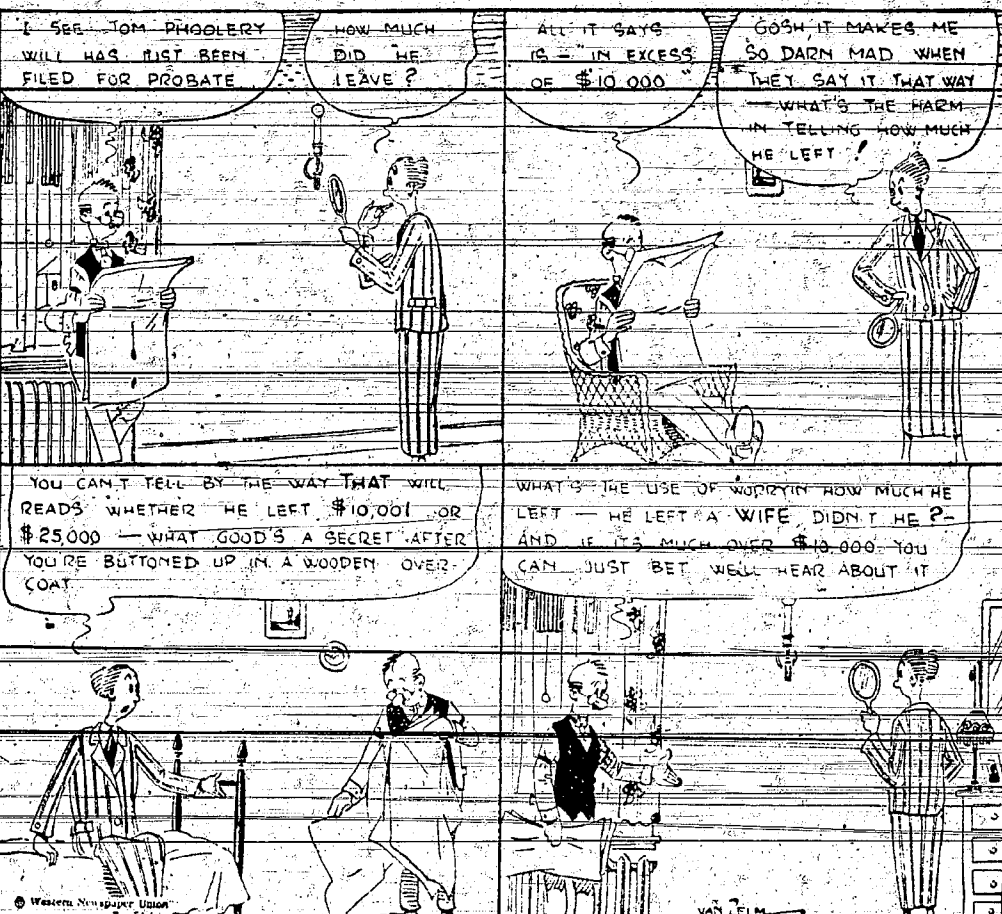 I SEE TOM PHOOLERY
WILL HAS JUST BEEN
FILED FOR PROBATE
HOW MUCH
DID HE
LEAVE?
ALL IT SAYS
IS — "IN EXCESS
OF $10,000"
GOSH, IT MAKES ME
SO DARN MAD WHEN
THEY SAY IT THAT WAY
— WHAT'S THE HARM
IN TELLING HOW MUCH
HE LEFT!
YOU CAN'T TELL BY THE WAY THAT WILL
READS WHETHER HE LEFT $10,001 OR
$25,000 — WHAT GOOD'S A SECRET AFTER
YOU'RE BUTTONED UP IN A WOODEN OVER-
COAT
WHAT'S THE USE OF WORRYIN HOW MUCH HE
LEFT — HE LEFT A WIFE, DIDN'T HE?—
AND IF IT'S MUCH OVER $10,000 YOU
CAN JUST BET WE'LL HEAR ABOUT IT
© Western Newspaper Union
VAN ZELM